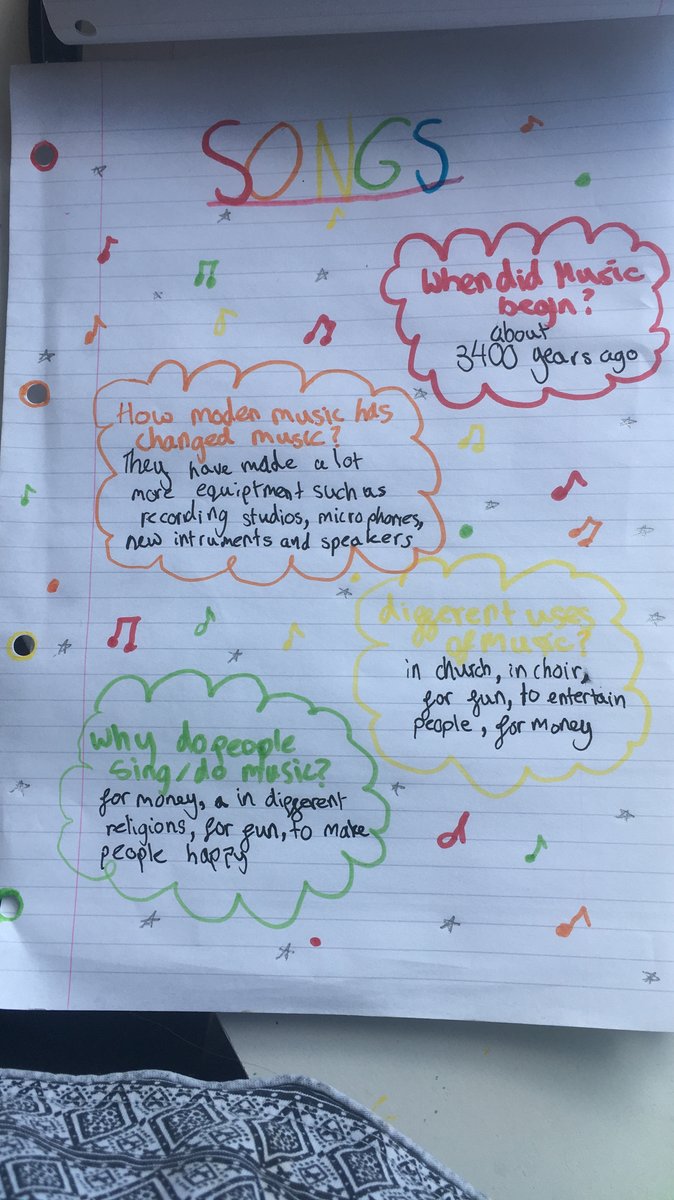 SONGS
When did Music
begin?
about
3400 years ago
How moden music has
changed music?
They have made a lot
more equiptment such as
recording studios, microphones,
new intruments and speakers
different uses
of Music?
in church, in choir,
for fun, to entertain
people, for money
Why do people
sing/do music?
for money, a in different
religions, for fun, to make
people happy